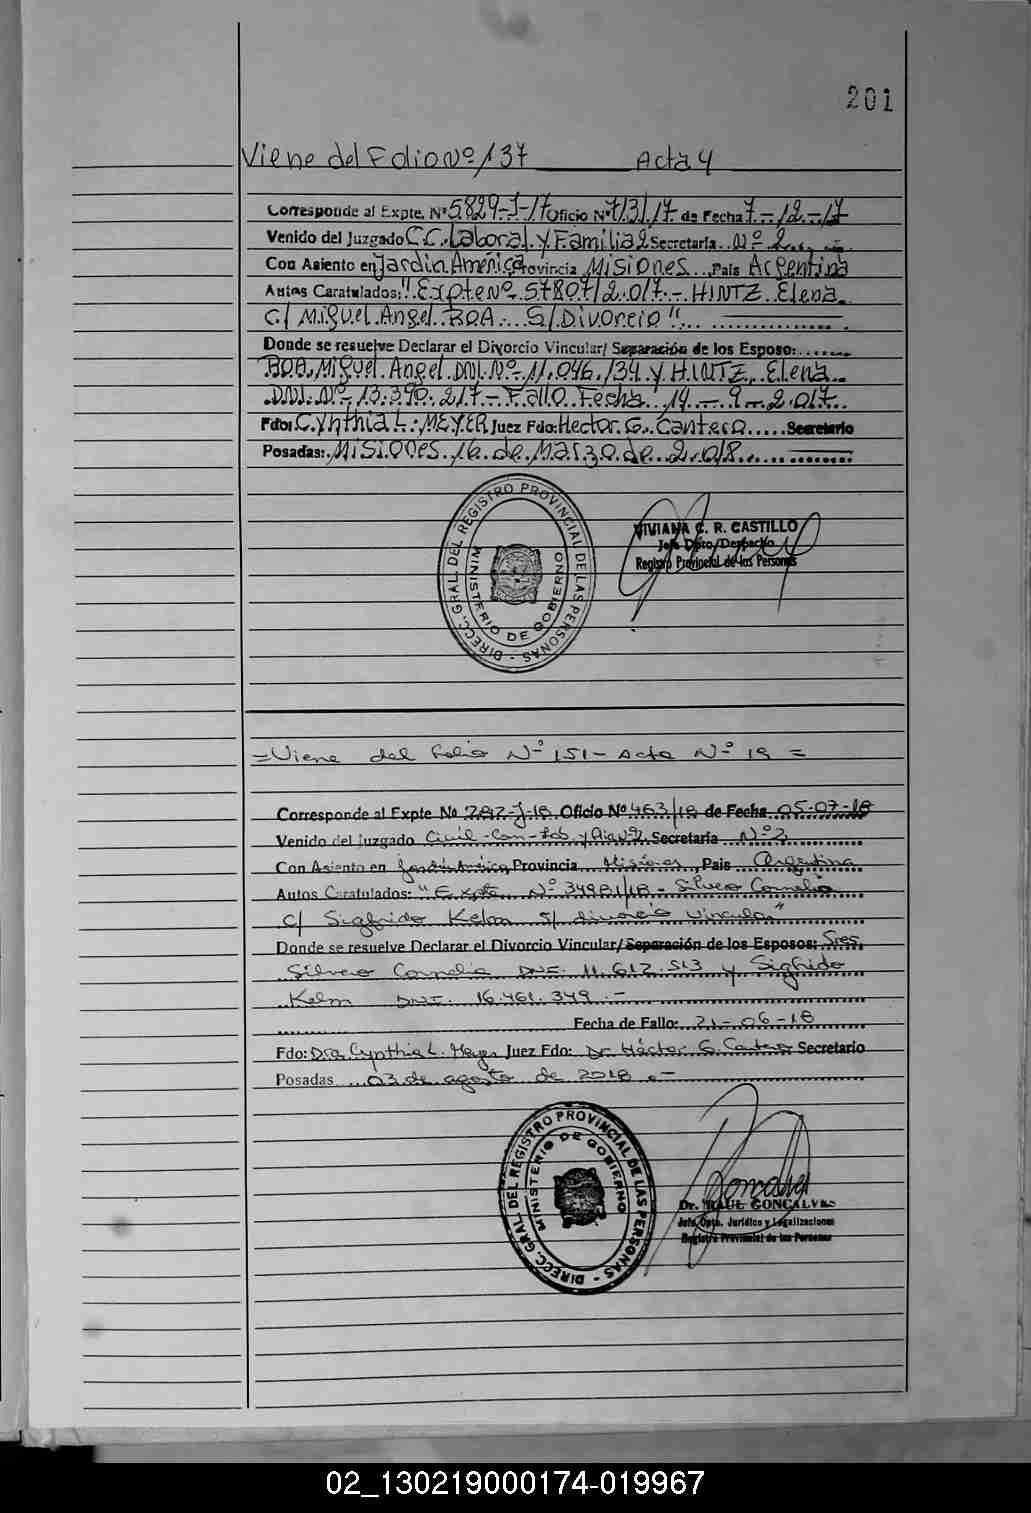 201
Viene del Folio Nº 137 Acta 4
Corresponde al Expte. Nº 5829-J-17 Oficio Nº 713/17 de Fecha 7-12-17
Venido del Juzgado C.C. Laboral y Familia 2 Secretaria Nº 2
Con Asiento en Jardin America Provincia Misiones Pais Argentina
Autos Caratulados: "Expte Nº 57807/2017 - HINTZ Elena
C/ Miguel Angel BOA S/ Divorcio"
Donde se resuelve Declarar el Divorcio Vincular/ Separación de los Esposo:
BOA, Miguel Angel DNI Nº 11.046.134 y HINTZ, Elena
DNI Nº 13.390.217 - Fallo Fecha 19-9-2017
Fdo: Cynthia L. MEYER Juez Fdo: Hector G. Cantero Secretario
Posadas: Misiones 16 de Marzo de 2018
DIRECC. GRAL. DEL REGISTRO PROVINCIAL DE LAS PERSONAS -
MINISTERIO DE GOBIERNO
VIVIANA C. R. CASTILLO
Jefa Dpto. Despacho
Registro Provincial de las Personas
= Viene del folio Nº 151 - Acta Nº 19 =
Corresponde al Expte Nº 2812-J-18 Oficio Nº 463/18 de Fecha 05-07-18
Venido del Juzgado Civil-Com-Lab y Secretaria Nº 2
Con Asiento en Jardín América Provincia Misiones Pais Argentina
Autos Caratulados: "Expte Nº 34981/18 - Silvero Cornelia
c/ Sigfrido Kelm s/ divorcio vincular"
Donde se resuelve Declarar el Divorcio Vincular/ Separación de los Esposos: Sres.
Silvero Cornelia DNI: 11.612.513 y Sigfrido
Kelm DNI: 16.461.349.-
Fecha de Fallo: 21-06-18
Fdo: Dra. Cynthia L. Meyer Juez Fdo: Dr. Héctor G. Cantero Secretario
Posadas 03 de agosto de 2018.-
DIRECC. GRAL. DEL REGISTRO PROVINCIAL DE LAS PERSONAS -
MINISTERIO DE GOBIERNO
Dr. RAUL GONCALVES
Jefe Dpto. Jurídico y Legalizaciones
Registro Provincial de las Personas
02_130219000174-019967